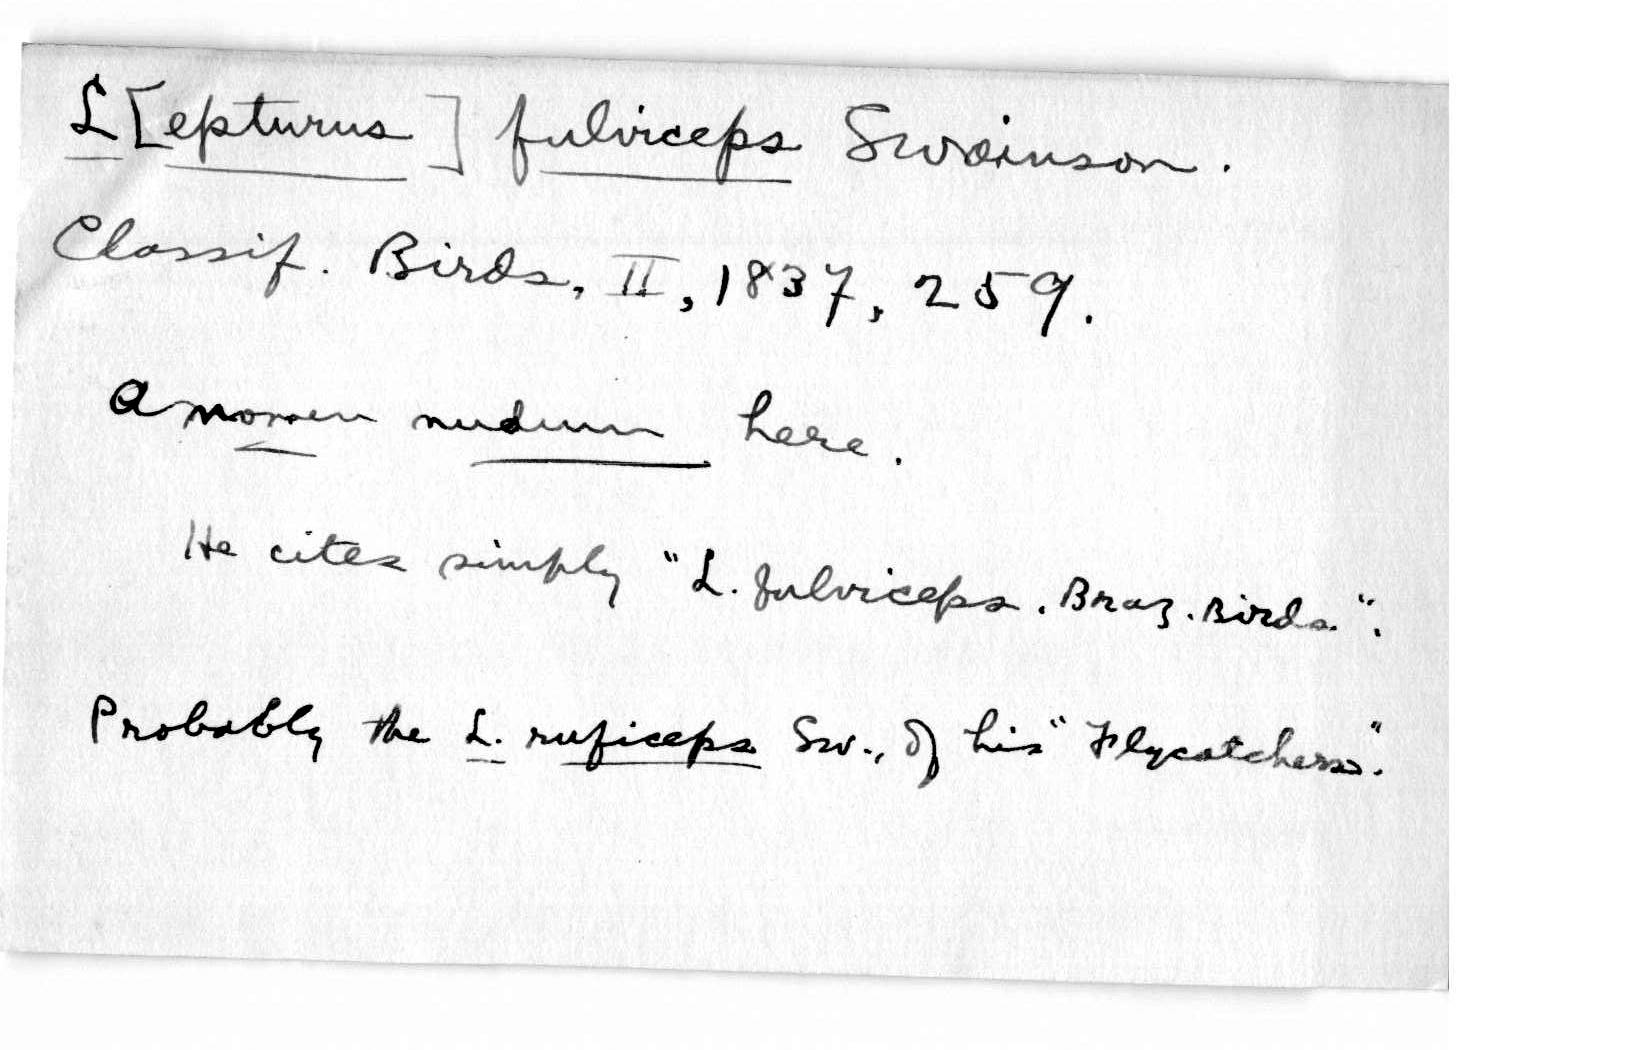 L[epturus] fulviceps Swainson.
Classif. Birds, II, 1837, 259.
A nomen nudum here.
He cites simply "L. fulviceps. Braz. Birds.".
Probably the L. ruficeps Sw., of his "Flycatchers".